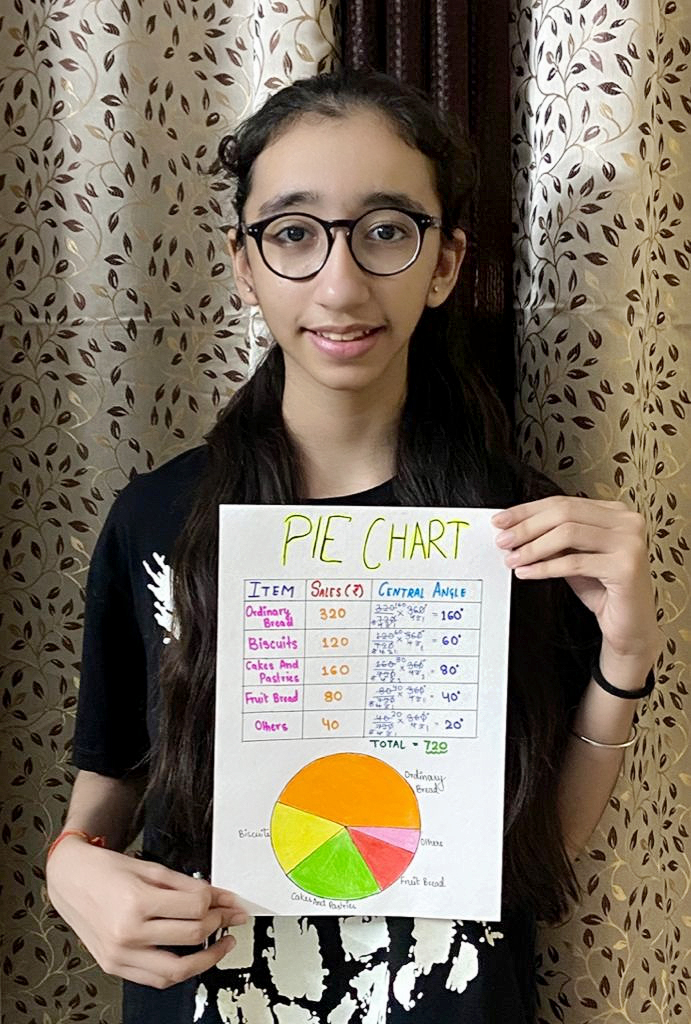 PIE CHART
ITEM SALES (₹) CENTRAL ANGLE
Ordinary Bread 320 320/720 × 360° = 160°
Biscuits 120 120/720 × 360° = 60°
Cakes And Pastries 160 160/720 × 360° = 80°
Fruit Bread 80 80/720 × 360° = 40°
Others 40 40/720 × 360° = 20°
TOTAL = 720
Ordinary
Bread
Biscuits
Others
Fruit Bread
Cakes And Pastries